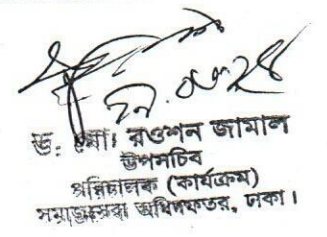 ড: মো। রওশন জামাল
উপসচিব
পরিচালক (কার্যক্রম)
সমাজসেবা অধিদফতর, ঢাকা।